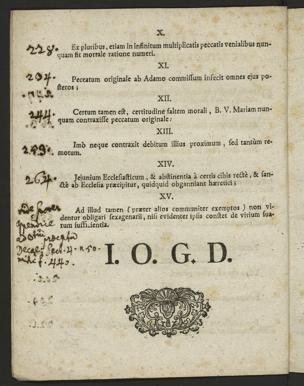 X.
228.
Ex pluribus, etiam in infinitum multiplicatis peccatis venialibus nun-
quam fit mortale ratione numeri.
XI.
234.
Peccatum originale ab Adamo commissum infecit omnes ejus po-
steros;
XII.
244.
Certum tamen est, certitudine saltem morali, B. V. Mariam nun-
quam contraxisse peccatum originale:
XIII.
Imò neque contraxit debitum illius proximum, sed tantùm re-
motum.
XIV.
264.
Jejunium Ecclesiasticum, & abstinentia à certis cibis rectè, & san-
ctè ab Ecclesia præcipitur, quidquid obganniant hæretici;
XV.
Ad illud tamen (præter alios communiter exemptos) non vi-
dentur obligari sexagenarii, nisi evidenter ipsis constet de virium sua-
rum sufficientia.
440.
I. O. G. D.